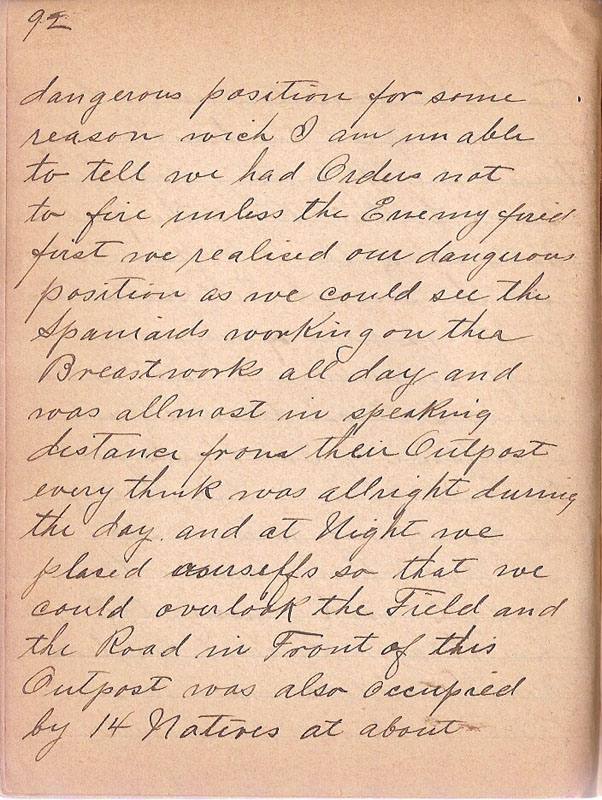 92
dangerous position for some
reason wich I am unable
to tell we had Orders not
to fire unless the Enemy fired
first we realised our dangerous
position as we could see the
Spaniards working on the
Breastworks all day and
was allmost in speaking
distance from their Outpost
every think was allright during
the day and at Night we
placed ourselfs so that we
could overlook the Field and
the Road in Front of this
Outpost was also occupied
by 14 Natives at about